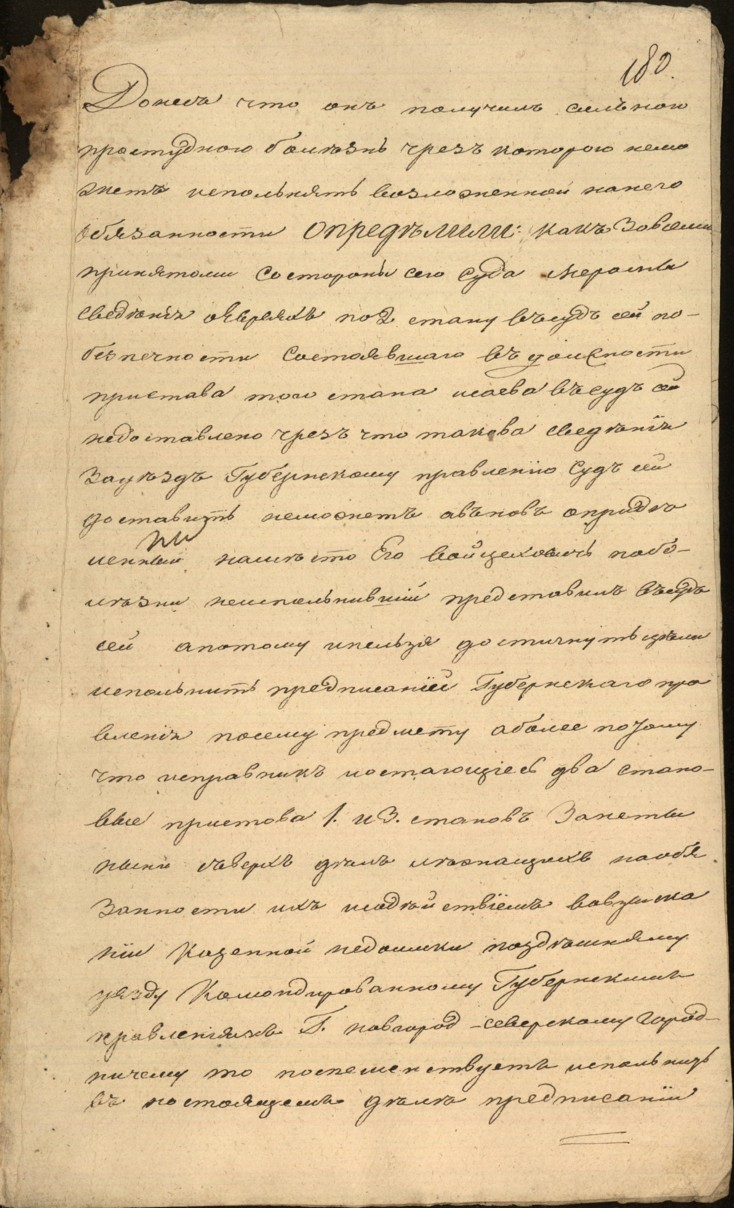 180.
Донесъ что онъ получилъ сильною
простудною болѣзнь чрезъ которою немо
жетъ исполнять возложенной нанего
обязанности Опредѣлили: какъ Зовсеми
принятоми Состороны сего Суда мерами
сведѣнія оевреяхъ по 2 стану въсудъ сей по-
безпечности Состоявшаго въ должности
пристава того стана исаева въсудъ сей
недоставлено чрезъ что такова сведѣнія
Зауѣздъ Губернскому правленію Судъ сей
доставить неможетъ авновъ опредѣ
ленный
ный намѣсто Его Войцеховичь побо-
лѣзни неисполнивший представилъ Въсудъ
сей апотому инельзя достичнуть цѣли
исполнить предписаніей Губернскаго пра
вленія посему предмету аболее потому
что исправникъ иостающіеся два стано-
вые пристова 1. и 3. становъ Заняты
ныне сверхъ дѣлъ лѣжащихъ наобя
Занности ихъ исодѣйствіемъ вовзыска
ніи Казенной недоимки поздѣшнему
уѣзду Командированному Губернскимъ
правленіямъ Г. новгород-северскому город-
ничему то воспеменствуетъ исполнить
въ настоящемъ дѣлѣ предписаніи